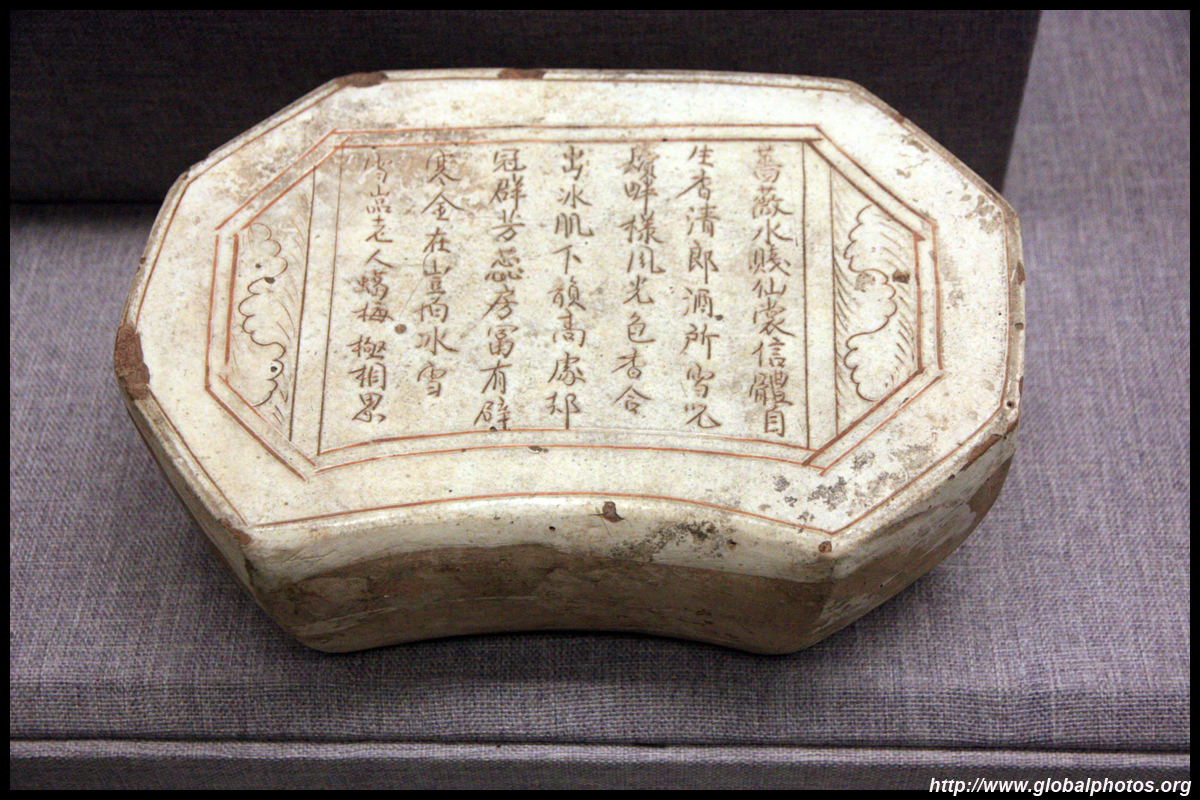 薔薇水賤仙裳信體自
生香清郎酒所
畔樣風光色香合
出冰肌下頦高處
冠群芳蕊房富有
寒全在豈 冰雪
老人 梅 相思
http://www.globalphotos.org